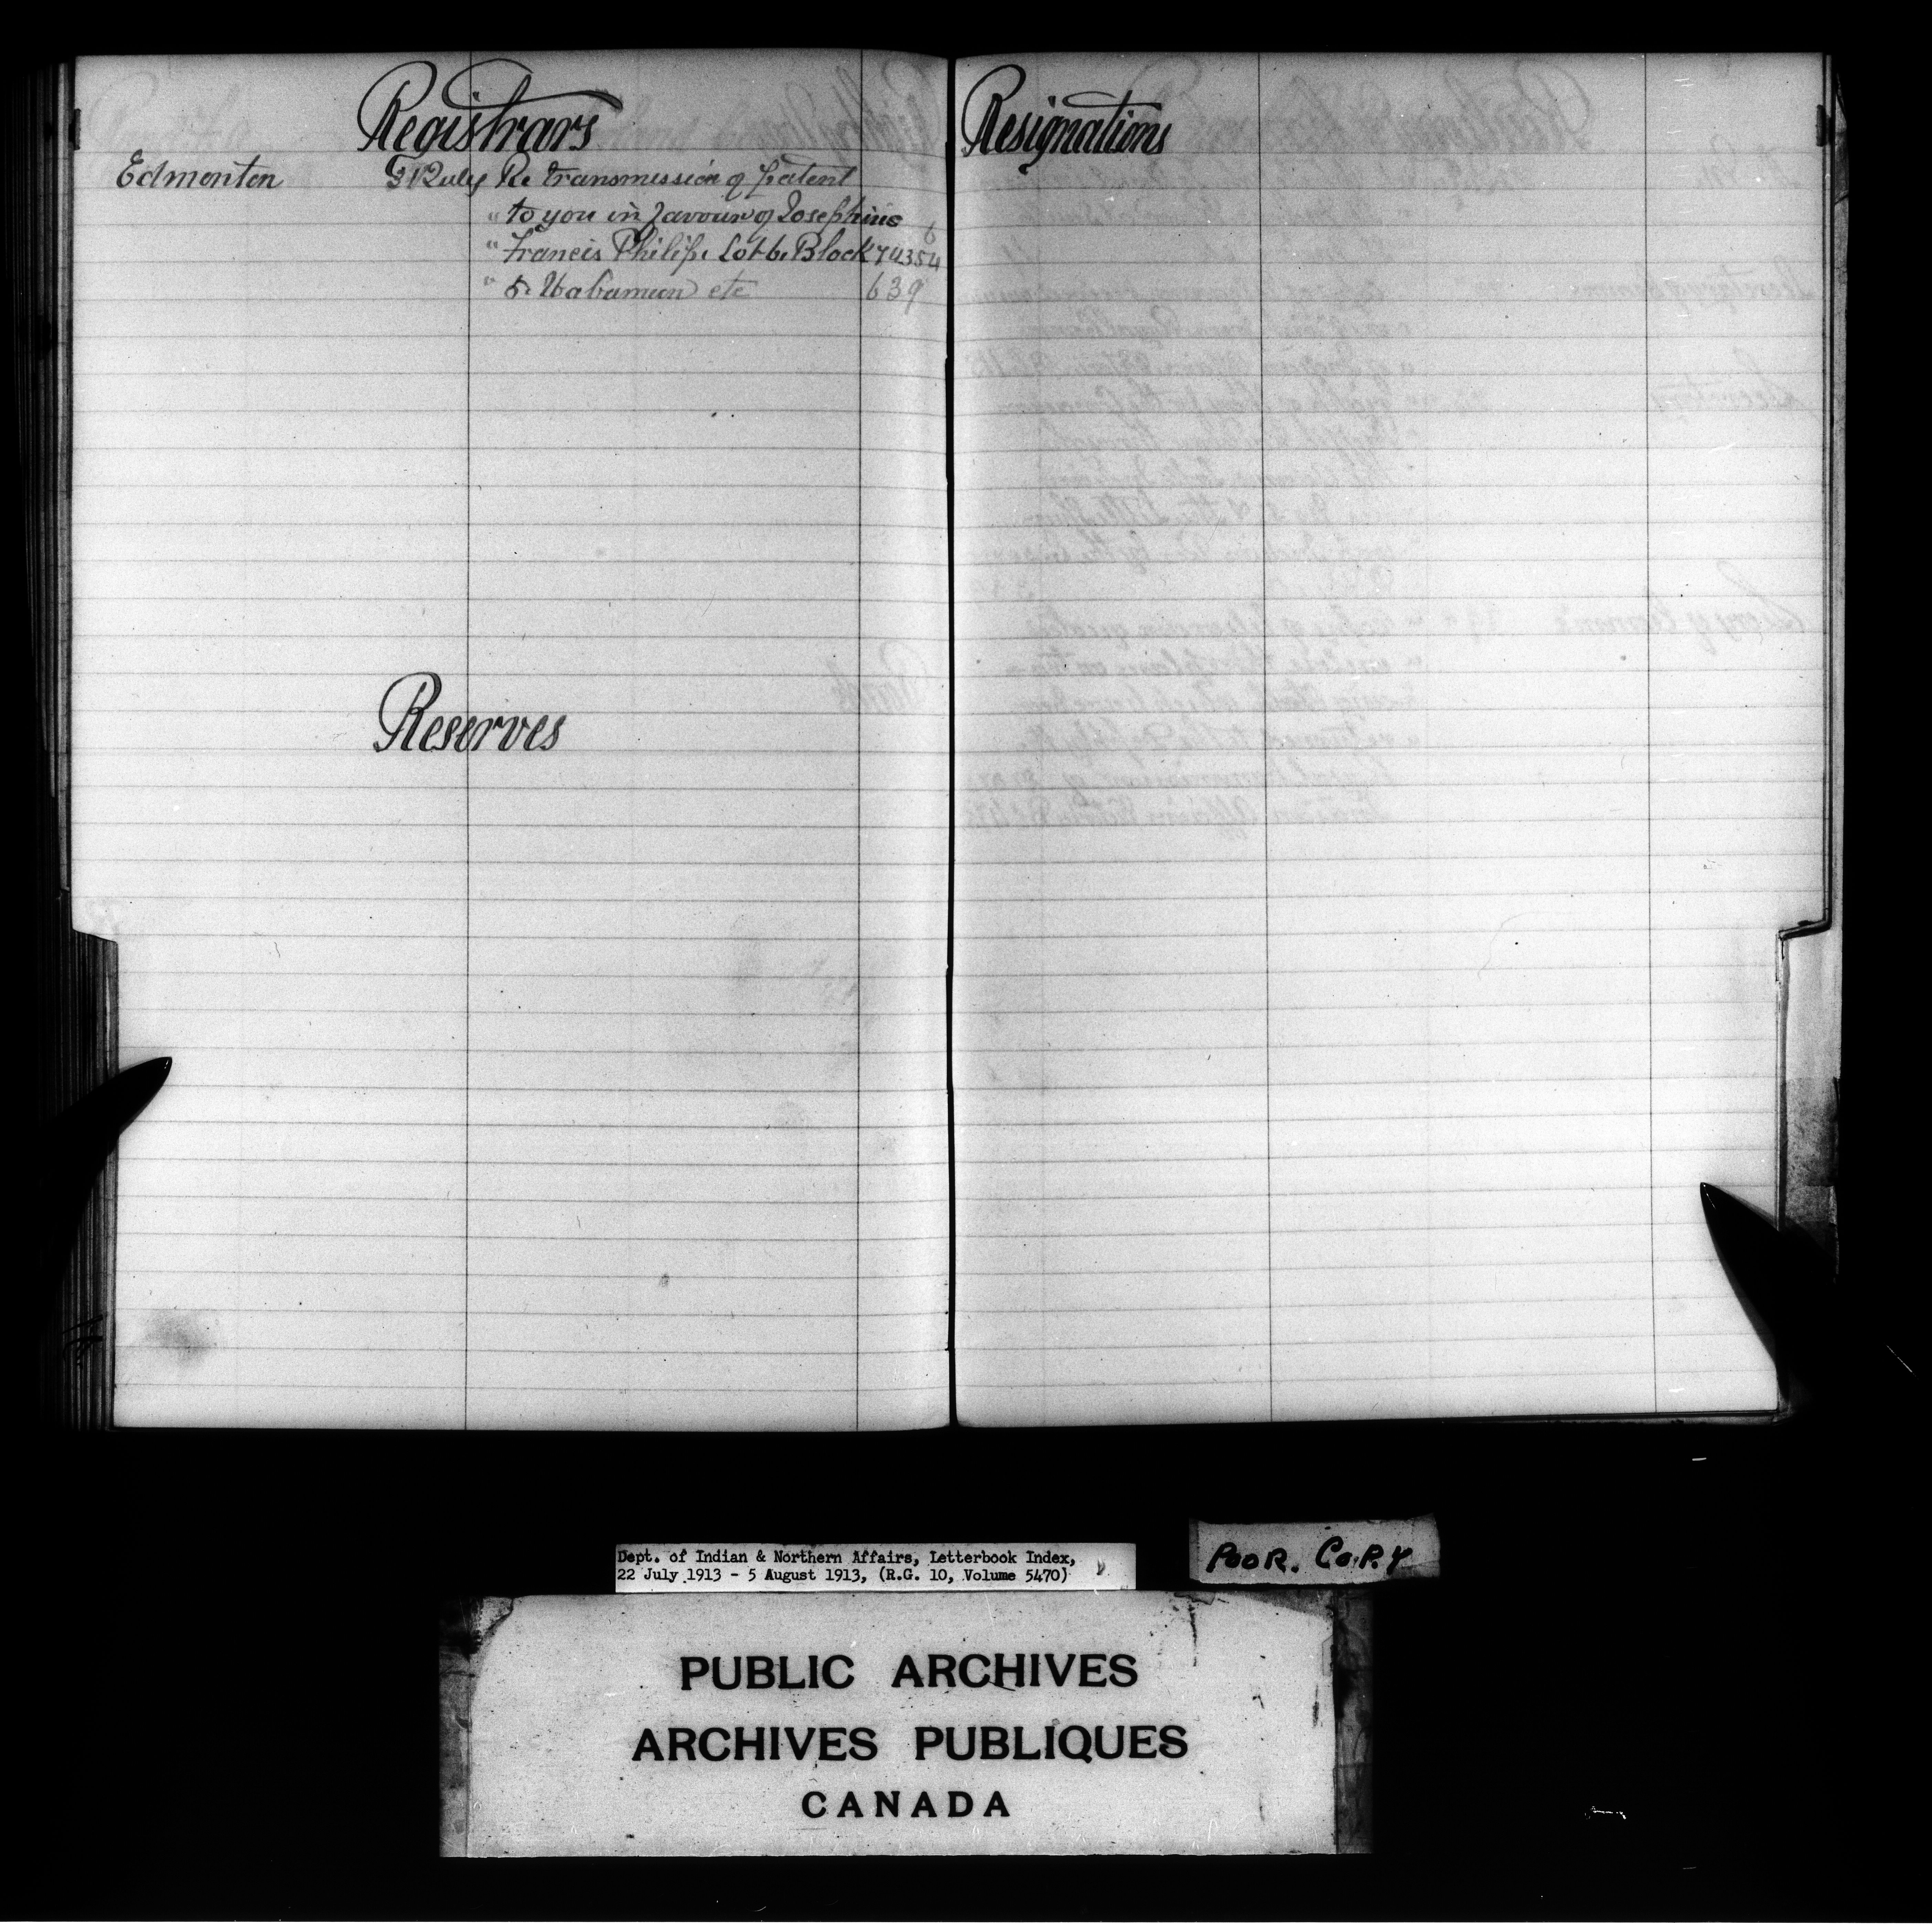 Registrars
Edmonton 31 July Re transmission of patent
" to you in favour of Josephine
" Francis Philip. Lot 6. Block 74354
" 5. Wabamun etc 639
Reserves
Resignations
Dept. of Indian & Northern Affairs, Letterbook Index,
22 July 1913 - 5 August 1913, (R.G. 10, Volume 5470)
POOR. COPY
PUBLIC ARCHIVES
ARCHIVES PUBLIQUES
CANADA